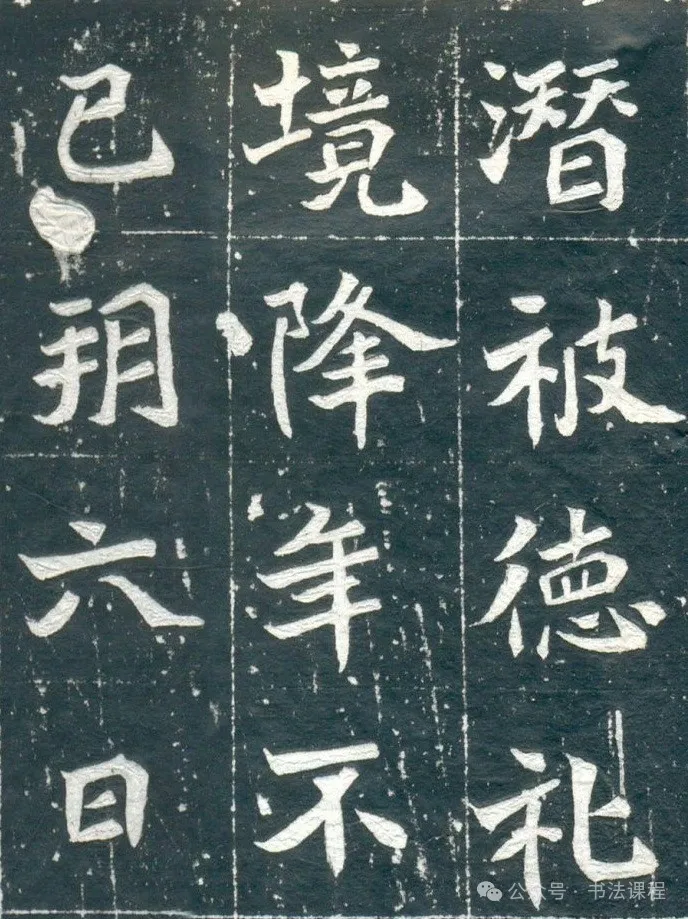 潛被德礼
境降年不
巳朔六日
公众号 · 书法课程